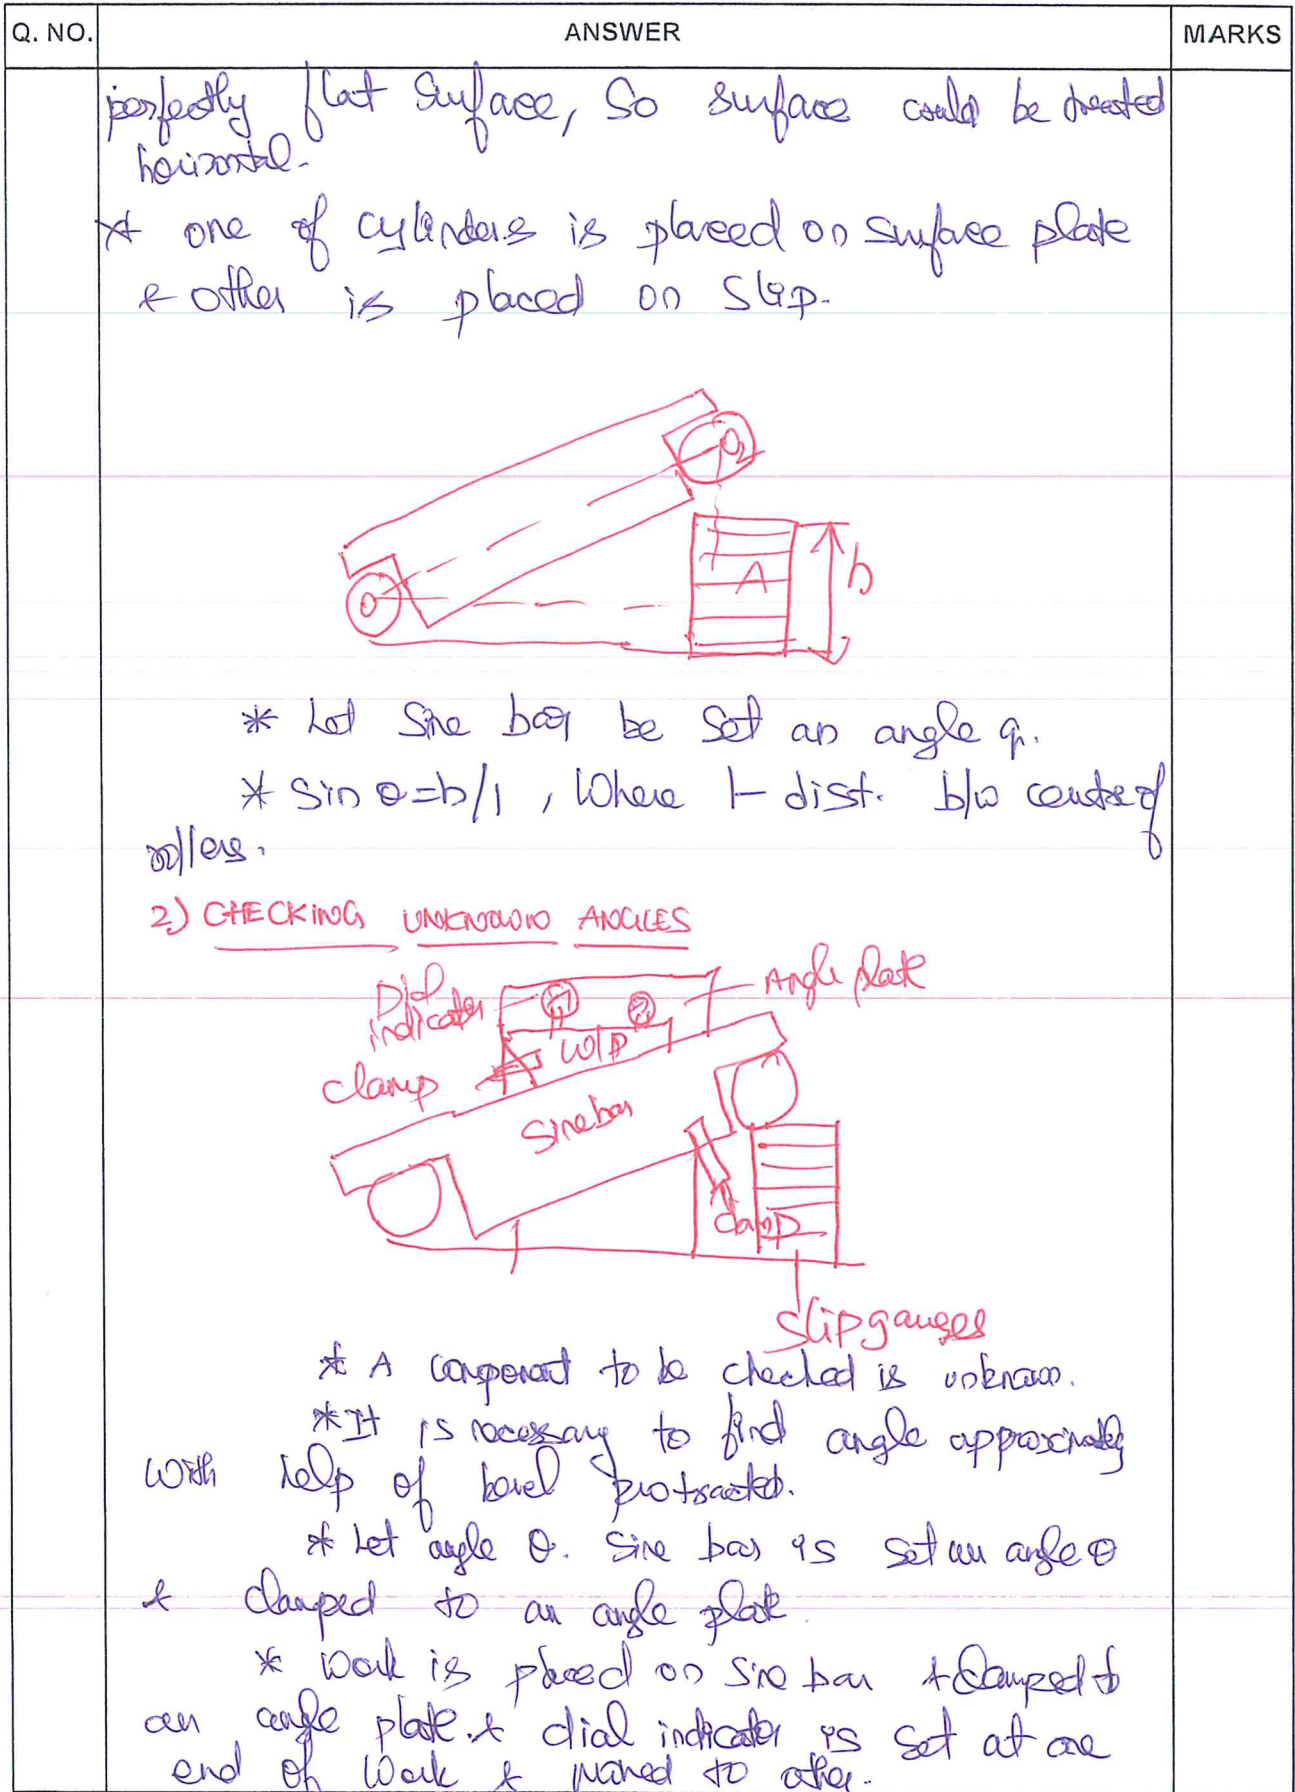 Q. NO. ANSWER MARKS
perfectly flat surface, so surface could be treated
horizontal.
* one of cylinders is placed on surface plate
& other is placed on slip.
O2
O A h
* Let Sine bar be set an angle q.
* sin θ=h/l, Where l- dist. b/w centre of
rollers.
2) CHECKING UNKNOWN ANGLES
Dial indicator Angle plate
W/P
clamp
Sinebar
clamp
Slip gauges
* A component to be checked is unknown.
* It is necessary to find angle approximately
with help of bevel protractor.
* Let angle θ. Sine bar is set an angle θ
& clamped to an angle plate.
* Work is placed on sine bar & clamped to
an angle plate. & dial indicator is set at one
end of Work & moved to other.